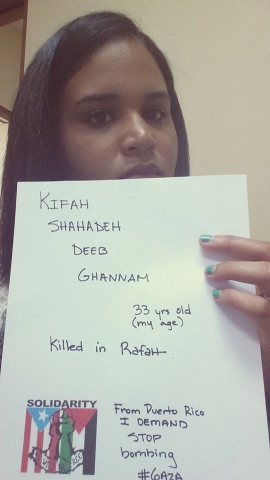 KIFAH
SHAHADEH
DEEB
GHANNAM
33 yrs old
(my age)
Killed in Rafah.
SOLIDARITY
From Puerto Rico
I DEMAND
STOP
bombing
#GAZA